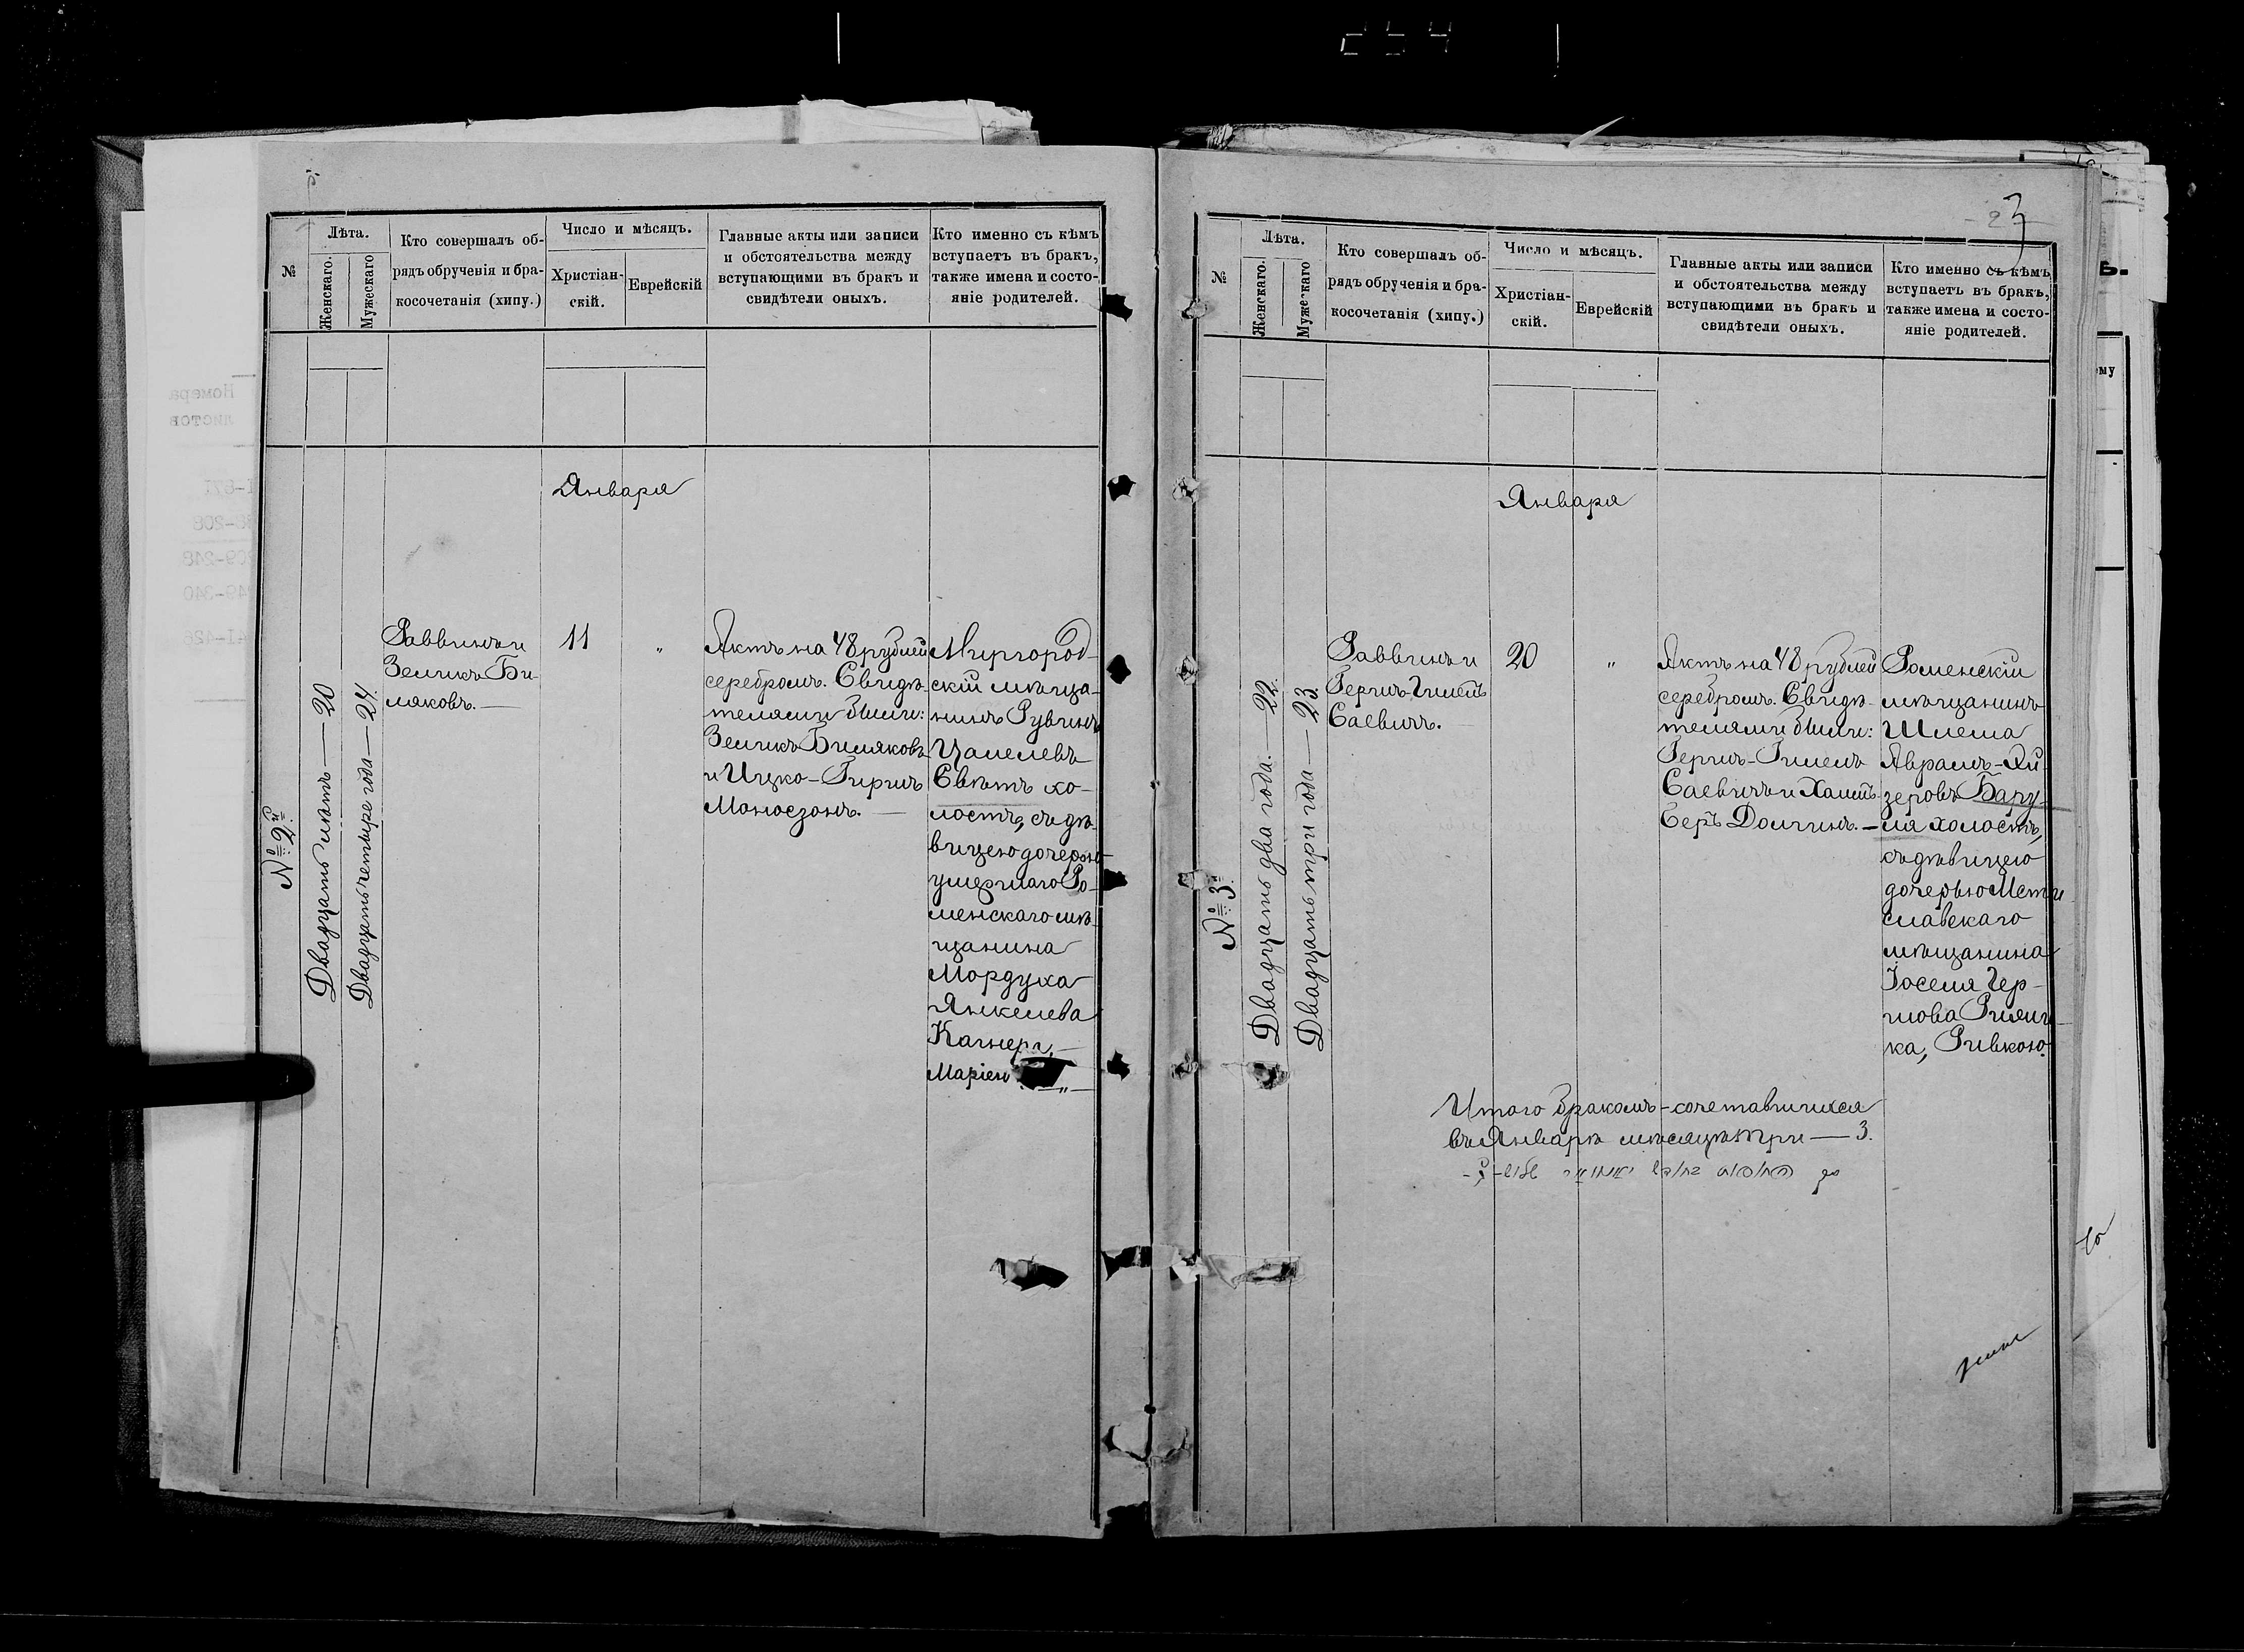 254
№
Лѣта.
Женскаго.
Мужескаго
Кто совершалъ об-
рядъ обрученія и бра-
косочетанія (хипу.)
Число и мѣсяцъ.
Христіан-
скій.
Еврейскій
Главные акты или записи
и обстоятельства между
вступающими въ бракъ и
свидѣтели оныхъ.
Кто именно съ кѣмъ
вступаетъ въ бракъ,
также имена и состо-
яніе родителей.
Января
№ 2й
Двадцать лѣтъ — 20
Двадцать четыре года — 24.
Раввинъ и
Зеликъ Би-
ляковъ. —
11
"
Актъ на 48 рублей
серебромъ. Свидѣ-
телями были:
Зеликъ Биляковъ
и Ицко-Гиршъ
Моносзонъ. —
Миргород-
скій мѣща-
нинъ Рувинъ
Цалелевъ
Свѣтъ хо-
лостъ, съ дѣ-
вицею дочерью
умершаго Ро-
менскаго мѣ-
щанина
Мордуха
Янкелева
Кагнера, —
Маріею — " —
23
№
Лѣта.
Женскаго.
Мужескаго
Кто совершалъ об-
рядъ обрученія и бра-
косочетанія (хипу.)
Число и мѣсяцъ.
Христіан-
скій.
Еврейскій
Главные акты или записи
и обстоятельства между
вступающими въ бракъ и
свидѣтели оныхъ.
Кто именно съ кѣмъ
вступаетъ въ бракъ,
также имена и состо-
яніе родителей.
Января
№ 3й
Двадцать два года. — 22.
Двадцать три года — 23.
Раввинъ и
Гершъ-Гилель
Саевичъ.
20
"
Актъ на 48 рублей
серебромъ. Свидѣ-
телями были:
Гершъ-Гилель
Саевичъ и Хаимъ-
Беръ Долгинъ. —
Роменскій
мѣщанинъ
Шлема
Аврамъ-Ли-
зеровъ Бару-
ля холостъ,
съ дѣвицею
дочерью Мсти-
славскаго
мѣщанина
Іоселя Гер-
шова
ка, Ривкою.
Итого бракомъ-сочетавшихся
въ Январѣ мѣсяцѣ три — 3.
Номера
листов